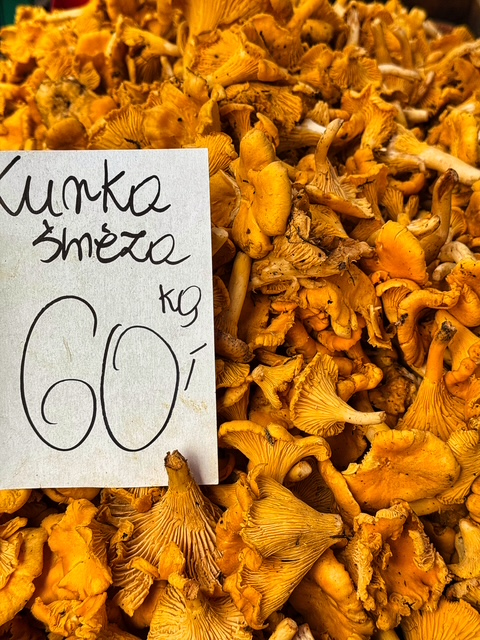 Kurka
śhięza
kg
60,-